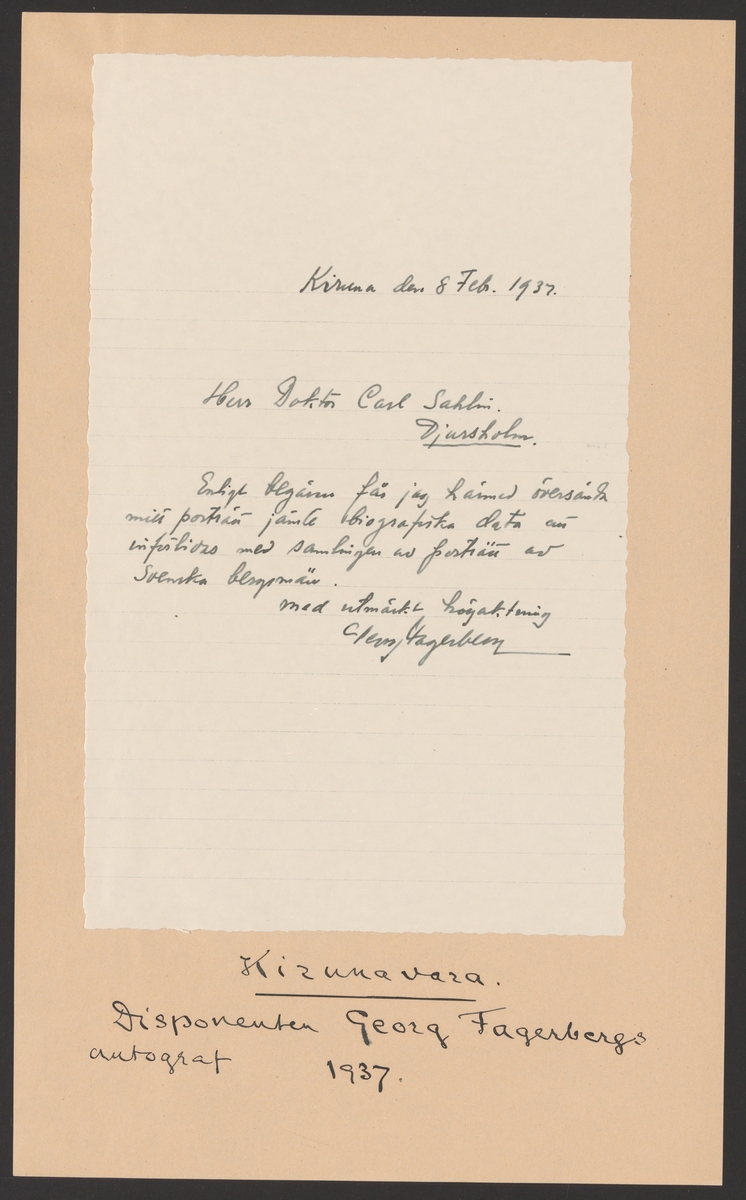 Kiruna den 8 Feb. 1937.
Herr Doktor Carl Sahlin.
Djursholm.
Enligt begäran får jag härmed översända
mitt porträtt jämte biografiska data att
införlivas med samlingen av porträtt av
Svenska bergsmän.
med utmärkt högaktning
Georg Fagerberg
Kirunavara.
Disponenten Georg Fagerbergs
autograf 1937.